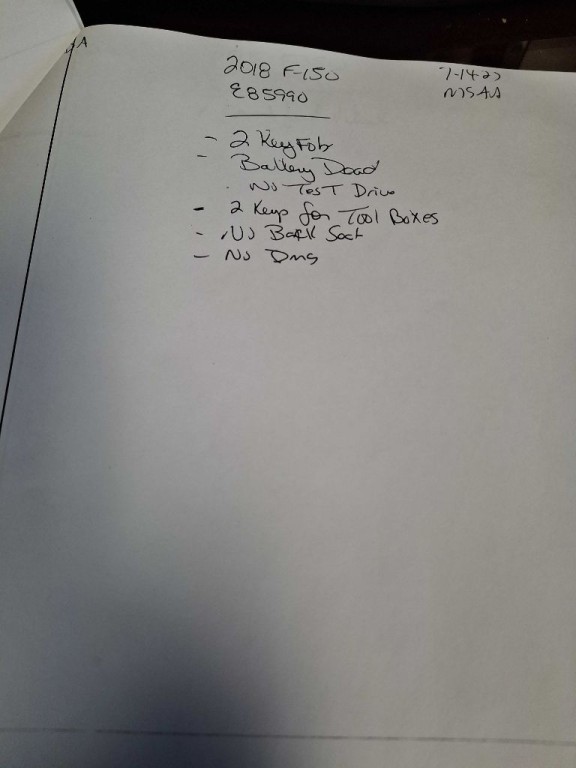 2018 F-150
7-14-23
E85990
MSAA
- 2 Key Fob
- Battery Dead
. No Test Drive
- 2 Keys for Tool Boxes
- No Back Seat
- No Dmg